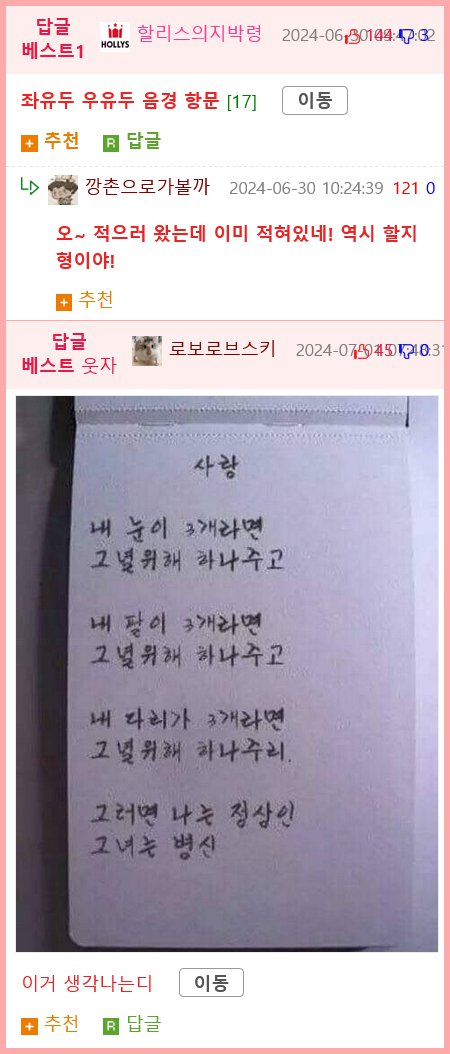 답글
베스트1
HOLLYS
할리스의지박령
좌유두 우유두 음경 항문 [17]
이동
추천
R 답글
깡촌으로가볼까 2024-06-30 10:24:39 121 0
오~ 적으러 왔는데 이미 적혀있네! 역시 할지
형이야!
추천
답글
베스트 웃자
로보로브스키
사랑
내 눈이 3개라면
그녈위해 하나주고
내 팔이 3개라면
그녈위해 하나주고
내 다리가 3개라면
그녈위해 하나주리.
그러면 나는 정삼인
그녀는 병신
이거 생각나는디
이동
추천
R 답글